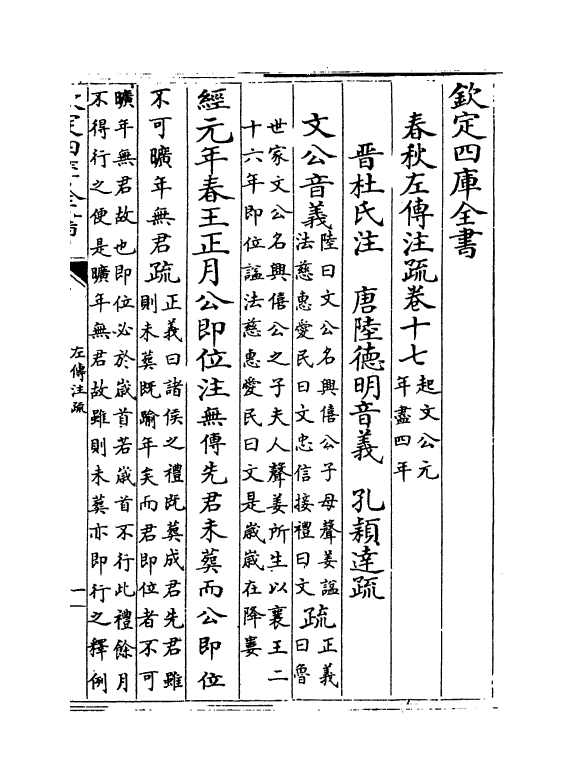 欽定四庫全書
春秋左傳注疏卷十七 起文公元
年盡四年
晉杜氏注 唐陸德明音義 孔穎達疏
文公音義 陸曰文公名興僖公子母聲姜諡
法慈惠愛民曰文忠信接禮曰文 疏 正義
曰魯
世家文公名興僖公之子夫人聲姜所生以襄王二
十六年即位諡法慈惠愛民曰文是歲歲在降婁
經元年春王正月公即位注無傳先君未葬而公即位
不可曠年無君疏 正義曰諸侯之禮既葬成君先君雖
則未葬既踰年矣而君即位者不可
曠年無君故也即位必於歲首若歲首不行此禮餘月
不得行之便是曠年無君故雖則未葬亦即行之釋例
左傳注疏
一